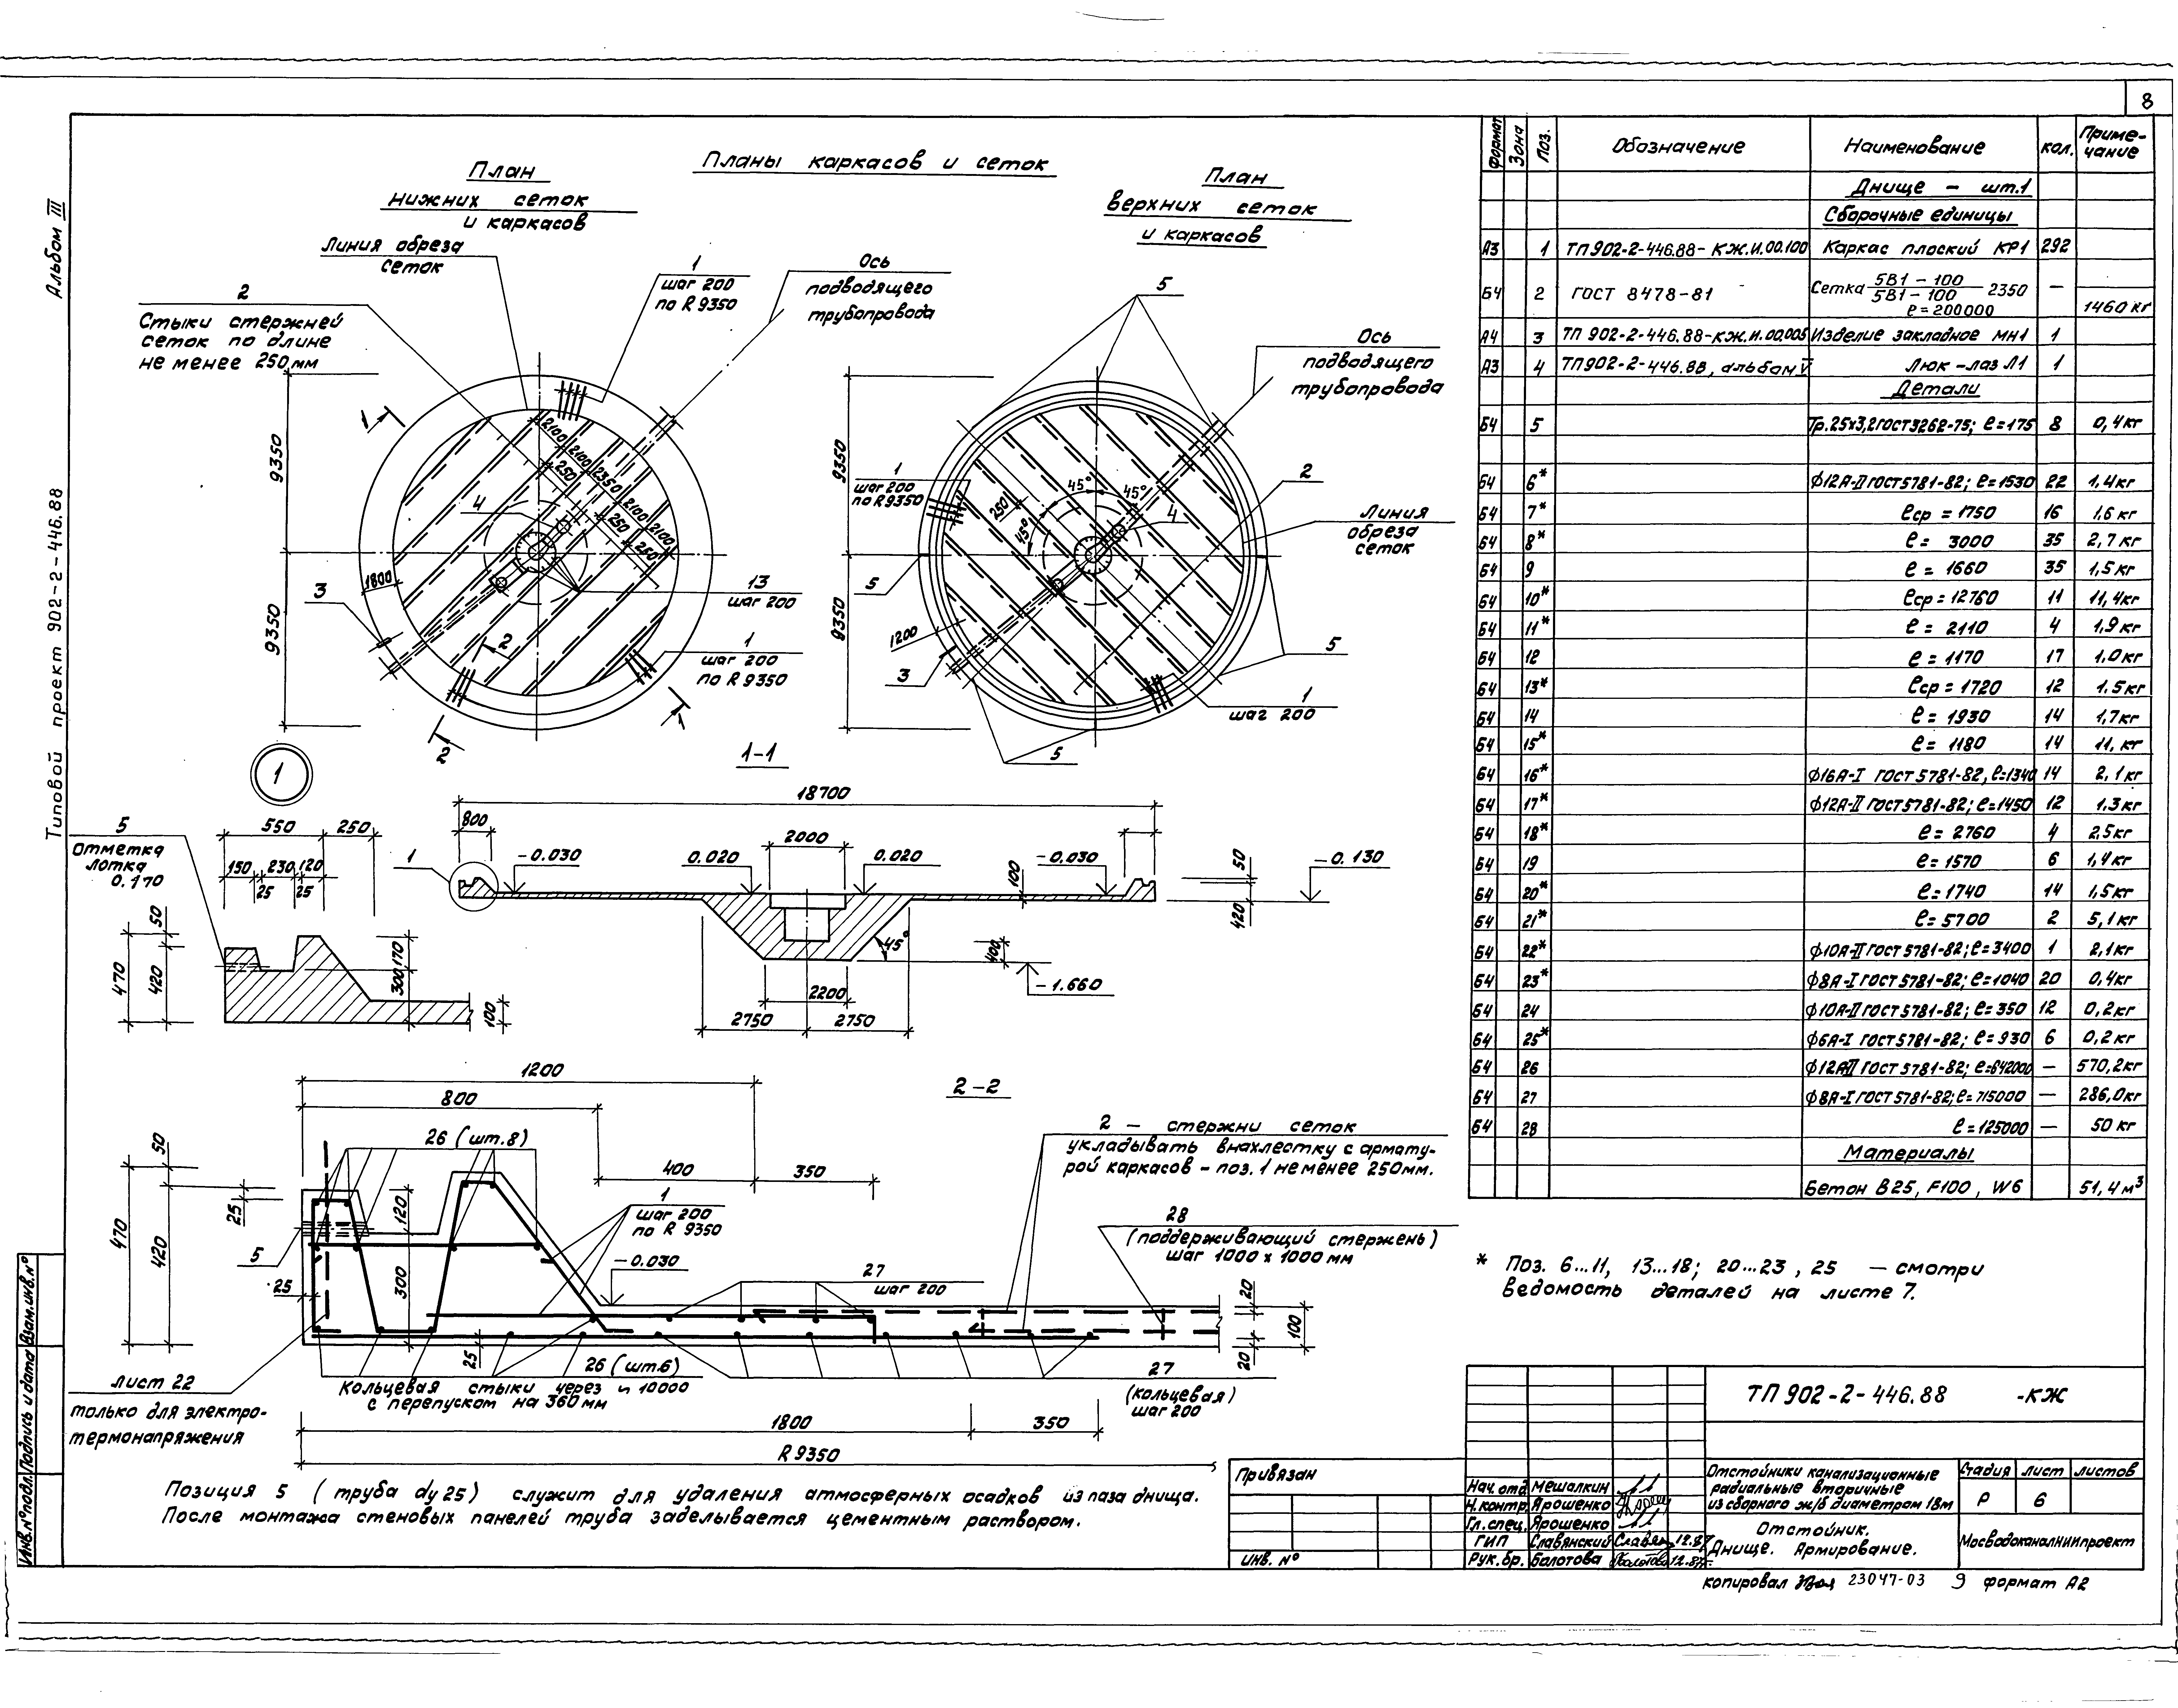 8
Альбом III
Типовой проект 902-2-446.88
Планы каркасов и сеток
План
нижних сеток
и каркасов
Линия обреза
сеток
2
Стыки стержней
сеток по длине
не менее 250мм
1
шаг 200
по R 9350
Ось
подводящего
трубопровода
9350
9350
1
1800
3
4
2100
2100
2350
2100
2100
250
250
250
13
шаг 200
1
шаг 200
по R 9350
2
2
1
План
верхних сеток
и каркасов
5
Ось
подводящего
трубопровода
2
Линия
обреза
сеток
9350
9350
1
шаг 200
по R 9350
5
45°
45°
45°
250
4
1200
3
5
1
шаг 200
5
1
5
отметка
лотка
0.170
550
250
150
230
120
25
25
50
470
420
170
300
100
1-1
18700
800
2000
1
-0.030
0.020
0.020
-0.030
100
50
-0.130
420
45°
400
-1.660
2200
2750
2750
2-2
1200
800
26 (шт.8)
400
350
50
470
420
25
120
300
5
25
1
шаг 200
по R 9350
-0.030
27
шаг 200
2 — стержни сеток
укладывать внахлестку с армату-
рой каркасов – поз.1 не менее 250мм.
28
(поддерживающий стержень)
шаг 1000 x 1000 мм
20
100
20
25
26 (шт.6)
Кольцевая стыки через 10000
с перепуском на 360мм
27
(кольцевая)
шаг 200
лист 22
только для электро-
термонапряжения
1800
350
R 9350
Позиция 5 (труба dу 25) служит для удаления атмосферных осадков из паза днища.
После монтажа стеновых панелей труба заделывается цементным раствором.
Формат Зона Поз. Обозначение Наименование кол. Приме-
чание
Днище – шт.1
Сборочные единицы
А3 1 ТП 902-2-446.88-КЖ.И.00.100 Каркас плоский КР1 292
Б4 2 ГОСТ 8478-81 Сетка 5В1-100/5В1-100 2350 —
ℓ=200000 1460 кг
А4 3 ТП 902-2-446.88-КЖ.И.00.005 Изделие закладное МН1 1
А3 4 ТП902-2-446.88, альбом V Люк-лаз Л1 1
Детали
Б4 5 Тр.25х3,2 ГОСТ3262-75; ℓ=175 8 0,4кг
Б4 6* Ф12А-II ГОСТ5781-82; ℓ=1530 22 1,4кг
Б4 7* ℓср=1750 16 1,6 кг
Б4 8* ℓ= 3000 35 2,7 кг
Б4 9 ℓ= 1660 35 1,5 кг
Б4 10* ℓср=12760 11 11,4кг
Б4 11* ℓ= 2110 4 1,9 кг
Б4 12 ℓ= 1170 17 1.0 кг
Б4 13* ℓср=1720 12 1.5 кг
Б4 14 ℓ= 1930 14 1,7 кг
Б4 15* ℓ= 1180 14 11, кг
Б4 16* Ф16А-I ГОСТ 5781-82, ℓ=1340 14 2,1 кг
Б4 17* Ф12А-II ГОСТ5781-82; ℓ=1450 12 1.3 кг
Б4 18* ℓ= 2760 4 2.5 кг
Б4 19 ℓ= 1570 6 1,4 кг
Б4 20* ℓ=1740 14 1,5 кг
Б4 21* ℓ=5700 2 5,1 кг
Б4 22* Ф10А-II ГОСТ 5781-82; ℓ=3400 1 2,1кг
Б4 23* Ф8А-I ГОСТ 5781-82; ℓ=1040 20 0,4кг
Б4 24 Ф10А-II ГОСТ 5781-82; ℓ=350 12 0,2кг
Б4 25* Ф6А-I ГОСТ 5781-82; ℓ= 930 6 0,2 кг
Б4 26 Ф12АII ГОСТ 5781-82; ℓ=642000 — 570,2кг
Б4 27 Ф8А-I ГОСТ 5781-82; ℓ= 715000 — 286,0кг
Б4 28 ℓ=125000 — 50 кг
Материалы
Бетон В25, F100, W6 51,4 м³
* Поз. 6...11, 13...18; 20...23, 25 — смотри
ведомость деталей на листе 7.
ТП 902-2-446.88 -КЖ
Привязан
ИНВ. N°
Нач. отд Мешалкин
Н.контр. Ярошенко
Гл.спец. Ярошенко
ГИП Славянский
Рук.бр. Болотова
Отстойники канализационные
радиальные вторичные
из сборного ж/б диаметром 18м
Стадия лист листов
Р 6
Отстойник.
Днище. Армирование.
МосводоканалНИИпроект
копировал 23047-03 9 формат А2
Инв.N°подл. Подпись и дата Взам.инв.N°